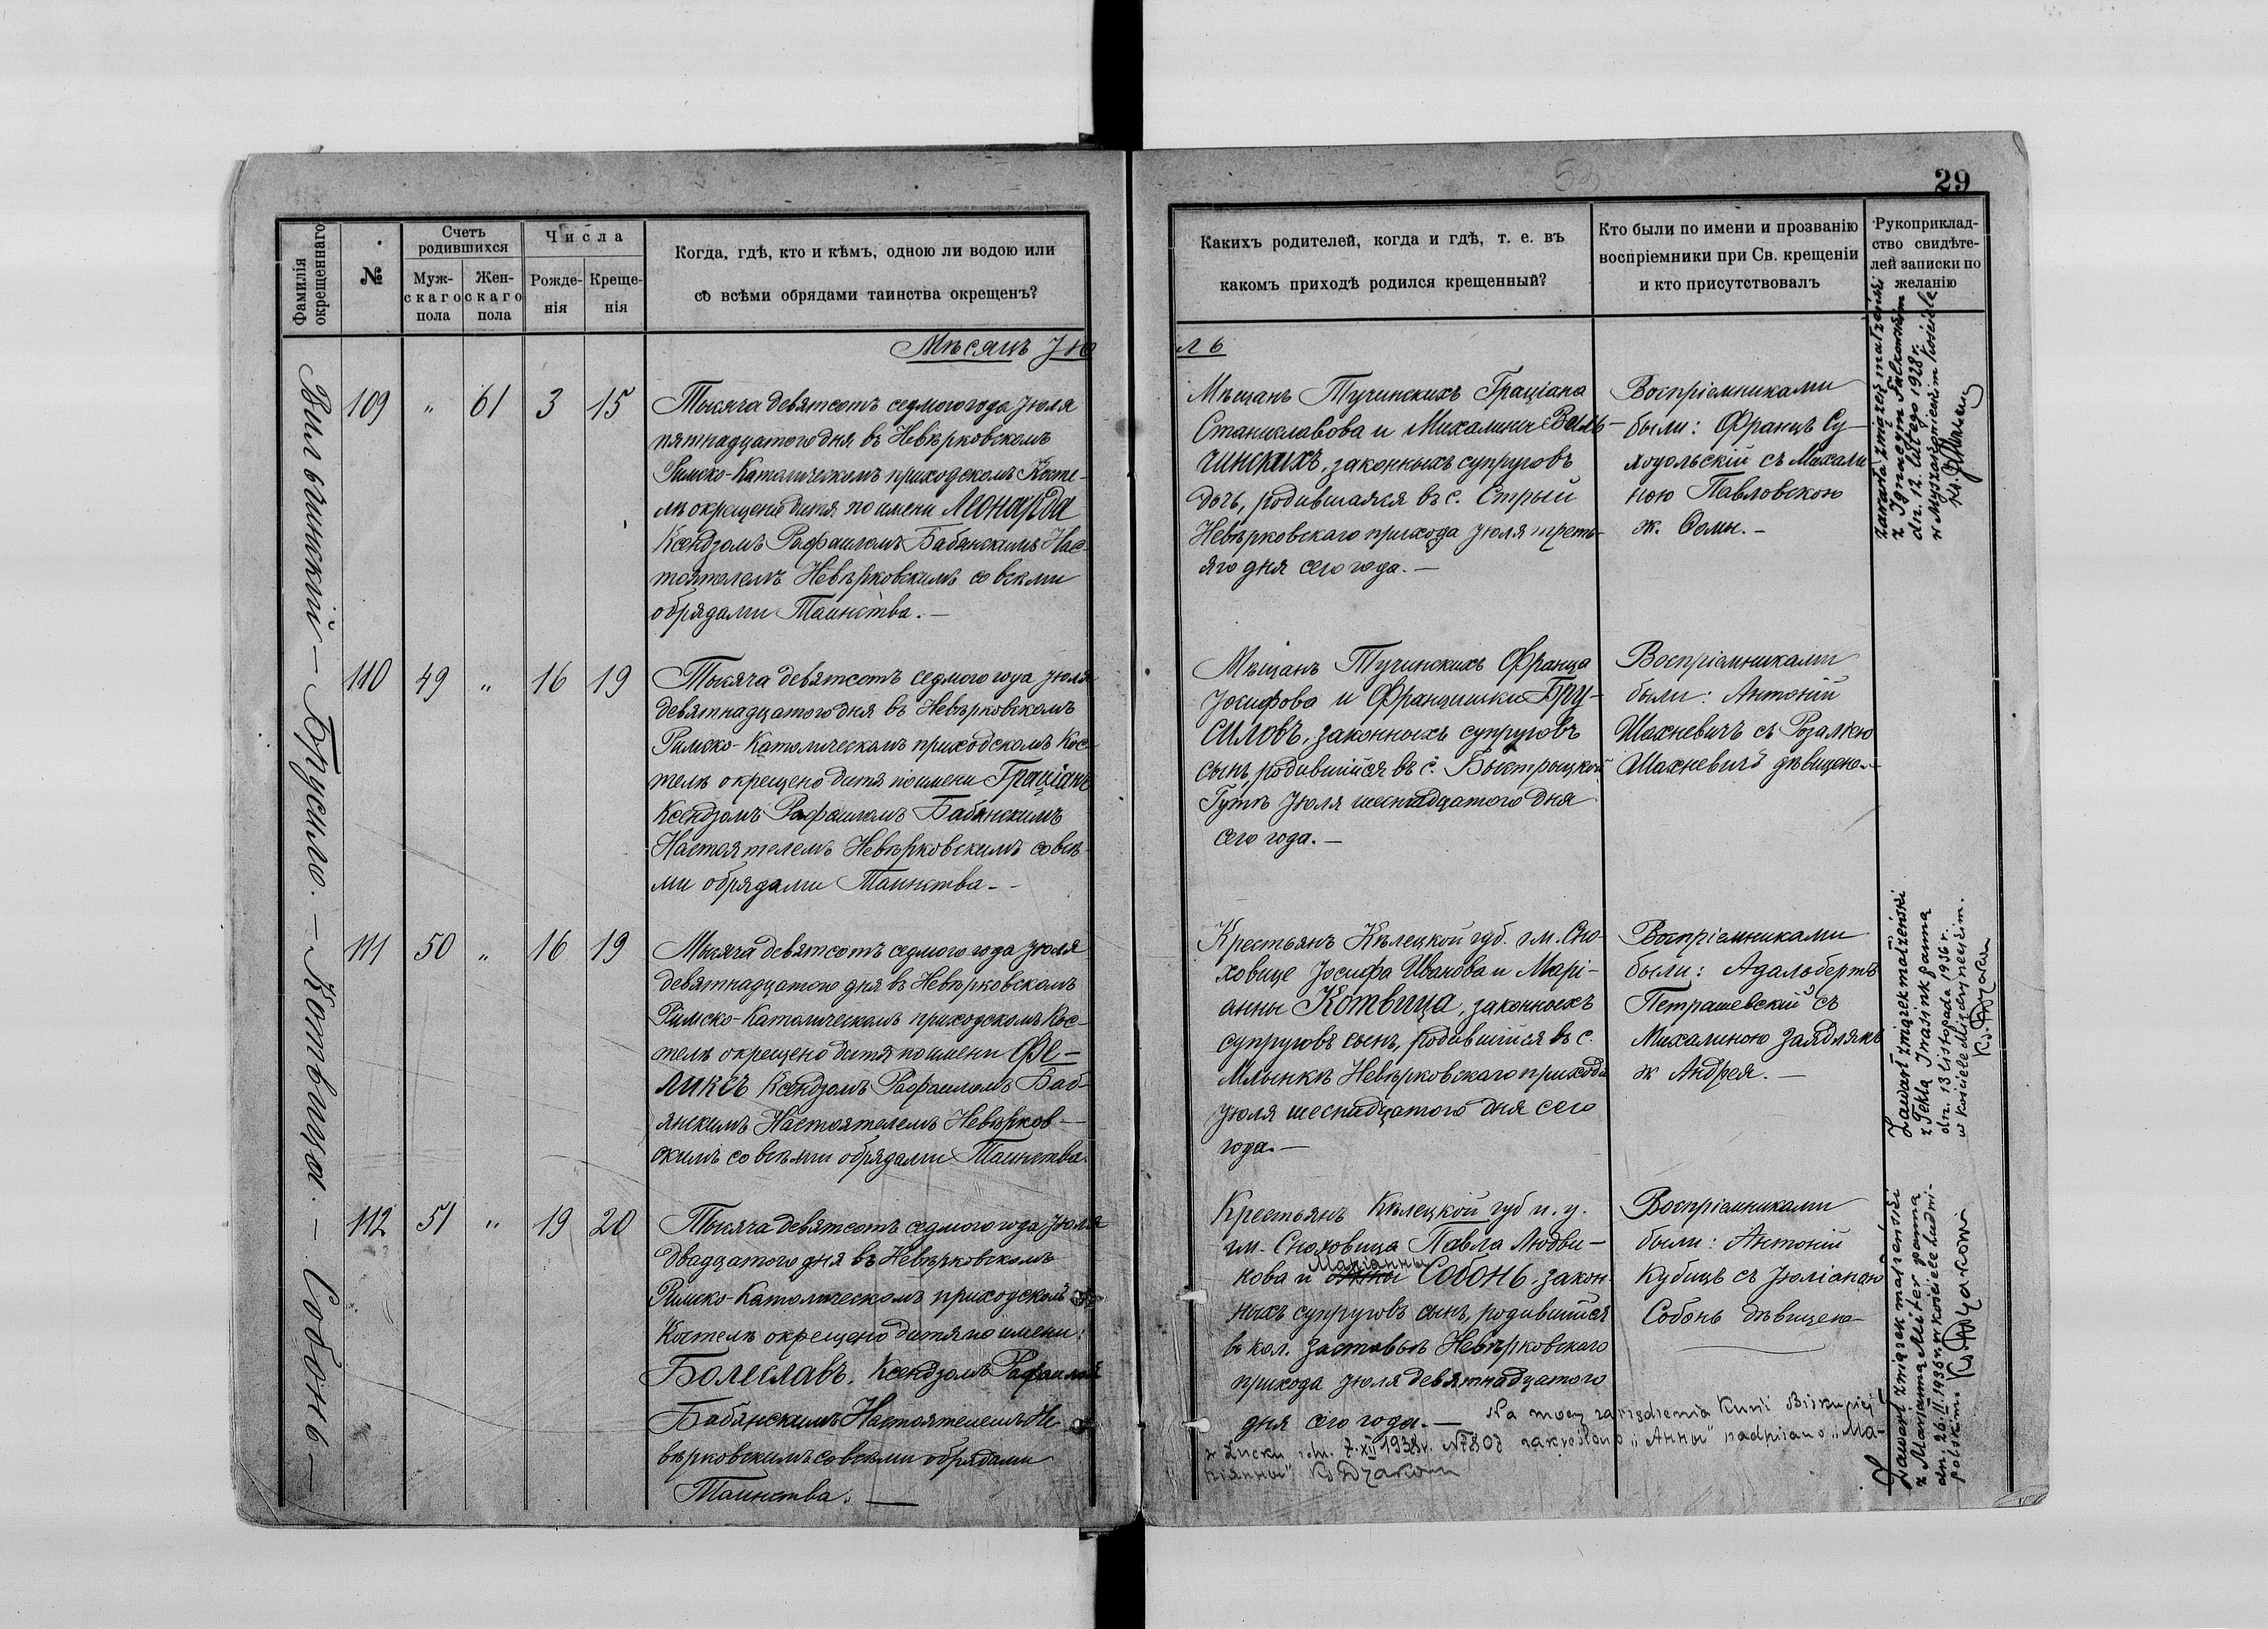 29
Фамилія окрещеннаго
№
Счетъ родившихся
Муж-скаго пола
Жен-скаго пола
Числа
Рожде-нія
Креще-нія
Когда, гдѣ, кто и кѣмъ, одною ли водою или
со всѣми обрядами таинства окрещенъ?
Какихъ родителей, когда и гдѣ, т. е. въ
какомъ приходѣ родился крещенный?
Кто были по имени и прозванію
воспріемники при Св. крещеніи
и кто присутствовалъ
Рукоприклад-
ство свидѣте-
лей записки по
желанію
Мѣсяцъ Іюль
Вильчинскій – Брусило. – Котвица. – Собонь –
109 " 61 3 15
Тысяча девятсотъ седмого года Іюля
пятнадцатого дня въ Невѣрковскомъ
Римско-Католическомъ приходскомъ Косте-
лѣ окрещено дитя по имени Леонарда
Ксендзомъ Рафаиломъ Бабянскимъ Нас-
тоятелемъ Невѣрковскимъ со всѣми
обрядами Таинства. –
Мѣщанъ Тучинскихъ Граціана
Станиславова и Михалины Виль-
чинскихъ, законныхъ супруговъ
дочь, родившаяся въ с. Стрый
Невѣрковскаго прихода Іюля треть-
яго дня сего года. –
Воспріемниками
были: Францъ Су-
ходольскій съ Михали-
ною Павловскою
ж. Ѳомы. –
Zawarła związek małżeński
z Ignacym Falkowskim
dn. 12. lutego 1928 r.
w kościele
110 49 " 16 19
Тысяча девятсотъ седмого года Іюля
девятнадцатого дня въ Невѣрковскомъ
Римско-Католическомъ приходскомъ Кос-
телѣ окрещено дитя по имени Граціанъ
Ксендзомъ Рафаиломъ Бабянскимъ
Настоятелемъ Невѣрковскимъ со всѣ-
ми обрядами Таинства. –
Мѣщанъ Тучинскихъ Франца
Іосифова и Франциски Бру-
силовъ, законныхъ супруговъ
сынъ, родившійся въ с. Быстрыцкой
Гутѣ Іюля шеснадцатого дня
сего года. –
Воспріемниками
были: Антоній
Шахневичъ съ Розаліею
Шахневичъ дѣвицею. –
111 50 " 16 19
Тысяча девятсотъ седмого года Іюля
девятнадцатого дня въ Невѣрковскомъ
Римско-Католическомъ приходскомъ Кос-
телѣ окрещено дитя по имени Фе-
ликсъ Ксендзомъ Рафаиломъ Баб-
янскимъ Настоятелемъ Невѣрков-
скимъ со всѣми обрядами Таинства.
Крестьянъ Кѣлецкой губ. гм. Сно-
ховице Іосифа Иванова и Марі-
анны Котвица, законныхъ
супруговъ сынъ, родившійся въ с.
Млынкѣ Невѣрковскаго прихода
Іюля шеснадцатого дня сего
года. –
Воспріемниками
были: Адальбертъ
Петрашевскій съ
Михалиною Заядлякъ
ж Андрея. –
Zawarł związek małżeński
z Teklą Jrasink panną
dn. 13 listopada 1936 r.
w kościele Międzyrzeckim.
Ks. Dyakow
112 51 " 19 20
Тысяча девятсотъ седмого года Іюля
двадцатого дня въ Невѣрковскомъ
Римско-Католическомъ приходскомъ
Костелѣ окрещено дитя по имени:
Болеславъ, Ксендзомъ Рафаиломъ
Бабянскимъ Настоятелемъ Не-
вѣрковскимъ со всѣми обрядами
Таинства. –
Крестьянъ Кѣлецкой губ и. у.
гм. Сноховица Павла Людви-
Маріанны
кова и Анны Собонь, закон-
ныхъ супруговъ сынъ, родившійся
въ кол. Заставье Невѣрковского
прихода Іюля девятнадцатого
дня сего года. –
Na mocy zarządzenia Kurii Biskupiej
w Łucku z dn. 7.XII 1938 r. № 7807 zakreślono „Анны" nadpisano „Ма-
ріанны" Ks Dyakow
Воспріемниками
были: Антоній
Кубицъ съ Юліаною
Собонь дѣвицею –
Zawarł związek małżeński
z Marjanną Miter panną
dn. 26.II.1936 r. w kościele Ludwi-
polskim. Ks Dyakow